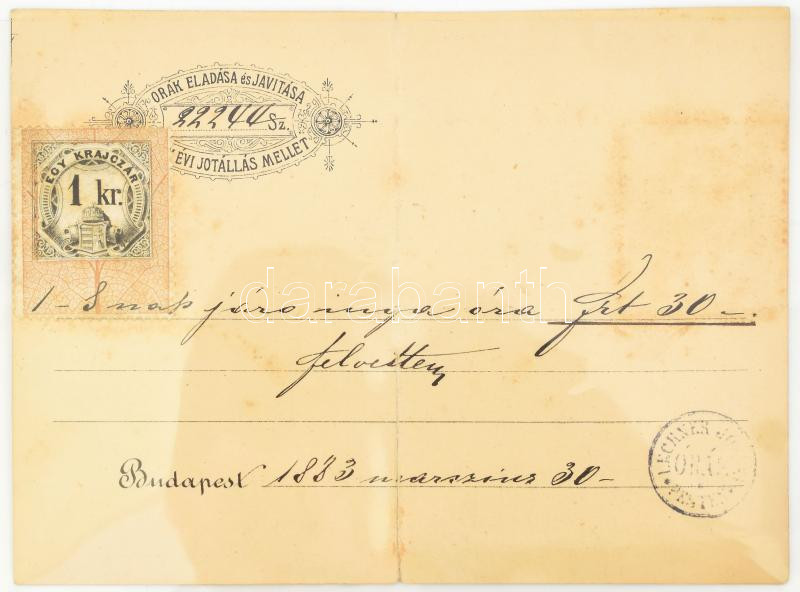 ORÁK ELADÁSA és JAVITÁSA
22244 Sz.
ÉVI JOTÁLLÁS MELLET
EGY KRAJCZÁR
1 kr.
darabanth
1 - 8 nap járo inga óra frt 30 -.
felvettem
Budapest 1883 marczius 30 -
LECHNER JO
ÓRÁS
PESTEN